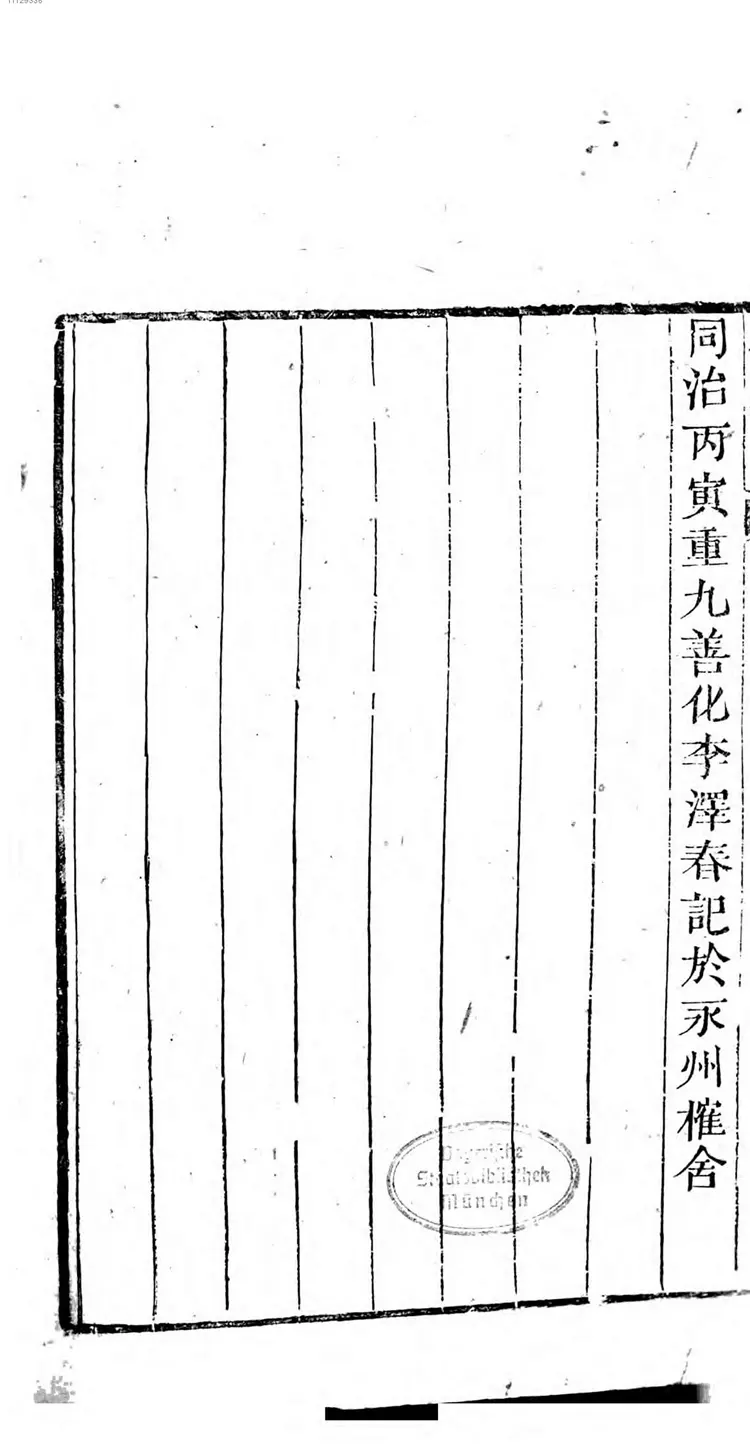 同治丙寅重九善化李澤春記於永州榷舍
Bayerische
Staatsbibliothek
München